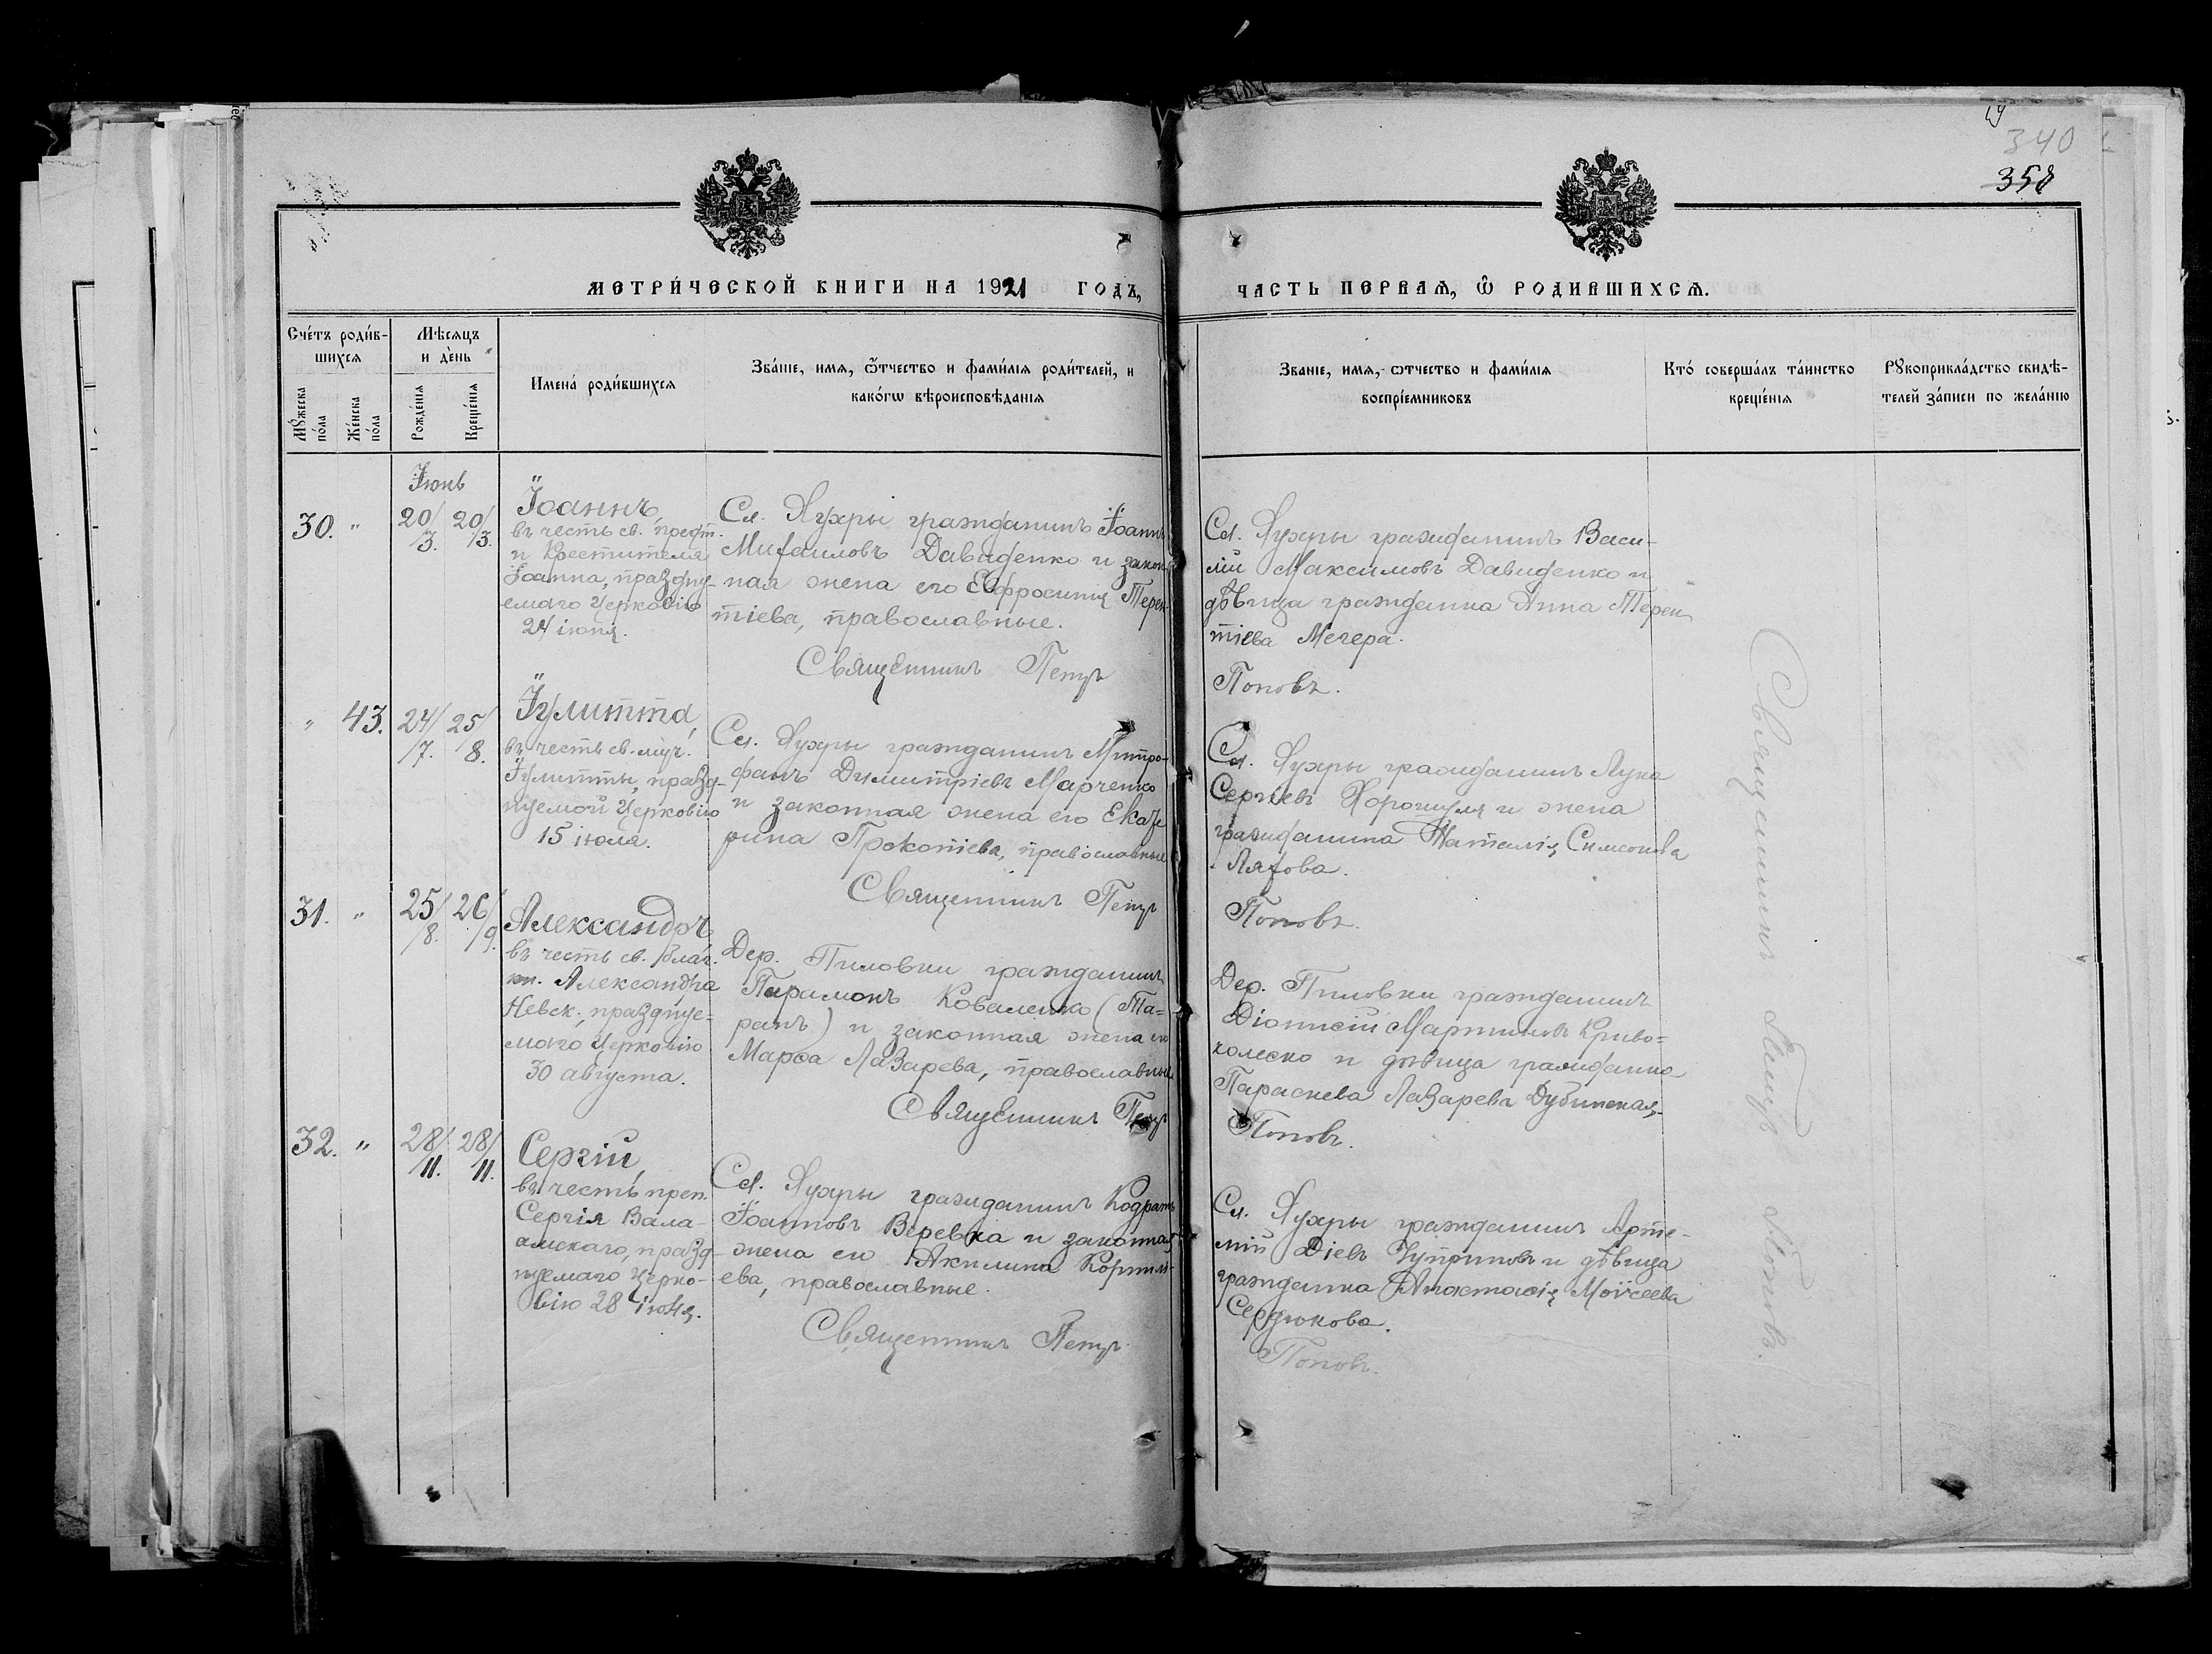 19
340
358
МЕТРИ́ЧЕСКОЙ КНИГИ НА 1921 ГОДЪ,
ЧАСТЬ ПЕРВАѦ, Ѿ РОДИВШИХСѦ.
Сче́тъ роди́в-
шихсѧ
Мѣ́сѧцъ
и де́нь
Имена́ роди́вшихсѧ
Зва́нїе, имѧ, ѻ҆́тчество и фами́лїѧ роди́телей, и
како́гѡ вѣроисповѣ́данїѧ
Мꙋ́жеска по́ла
Же́нска по́ла
Рожде́нїѧ
Креще́нїѧ
Званїе, имѧ, ѻтчество и фами́лїѧ
воспрїе́мниковъ
Кто́ соверша́лъ та́инство
креще́нїѧ
Рꙋкоприкла́дство свидѣ́-
телей за́писи по жела́нїю
Іюнь
30. " 20/3. 20/3.
Іоаннъ,
въ честь св. предт.
и Крестителя
Іоанна, праздну-
емаго Церковію
24 іюня.
Сл. Яхры гражданинъ Іоаннъ
Михаиловъ Давиденко и закон-
ная жена его Евфросинія Терен-
тіева, православные.
Священникъ Петръ
Сл. Яхры гражданинъ Васи-
лій Максимовъ Давиденко и
дѣвица гражданка Анна Терен-
тіева Мечера.
Поповъ.
" 43. 24/7. 25/8.
Іулитта,
въ честь св. муч.
Іулитты, празд-
нуемой Церковію
15 іюля.
гражданинъ Митро-
фанъ Димитріевъ Марченко
и законная жена его Екате
рина Прокопіева, православные
Священникъ Петръ
гражданинъ Лука
Сергіевъ Хорошуля и жена
гражданина Наталія Симеонова
Ляхова.
Поповъ.
31. " 25/8. 26/9.
Александръ,
въ честь св. благ.
кн. Александра
Невск., праздnуе-
маго Церковію
30 августа.
Дер. Пиловки гражданинъ
Парамонъ Коваленко (Та-
ранъ) и законная жена его
Марѳа Лазарева, православные
Священникъ Петръ
Дер. Пиловки гражданинъ
Діонисій Мартиновъ Криво-
колеско и дѣвица гражданка
Параскева Лазарева Дубинская.
Поповъ.
32. " 28/11. 28/11.
Сергій,
въ честь преп.
Сергія Вала-
амскаго, празд-
нуемаго Церко-
вію 28 іюня.
гражданинъ Кодратъ
Іоанновъ Веревка и законная
жена его Акилина Корнили-
ева, православные.
Священникъ Петръ
гражданинъ Арте-
мій Діевъ Чупринов и дѣвица
гражданка Анастасія Моѵсеева
Сердюкова.
Поповъ.
Священникъ Петръ Поповъ.